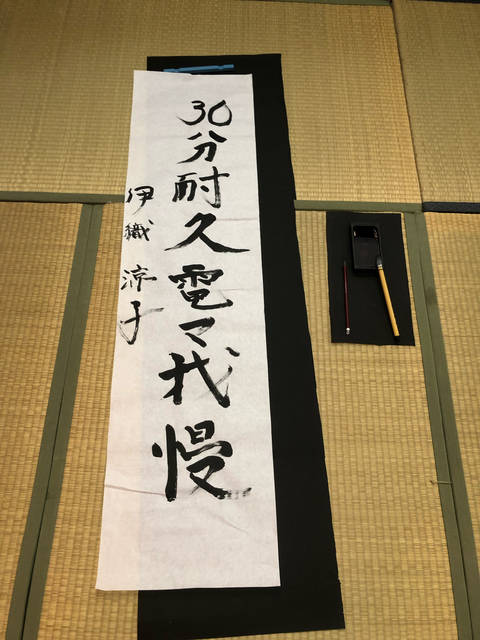 30分耐久電マ我慢
伊織 涼子